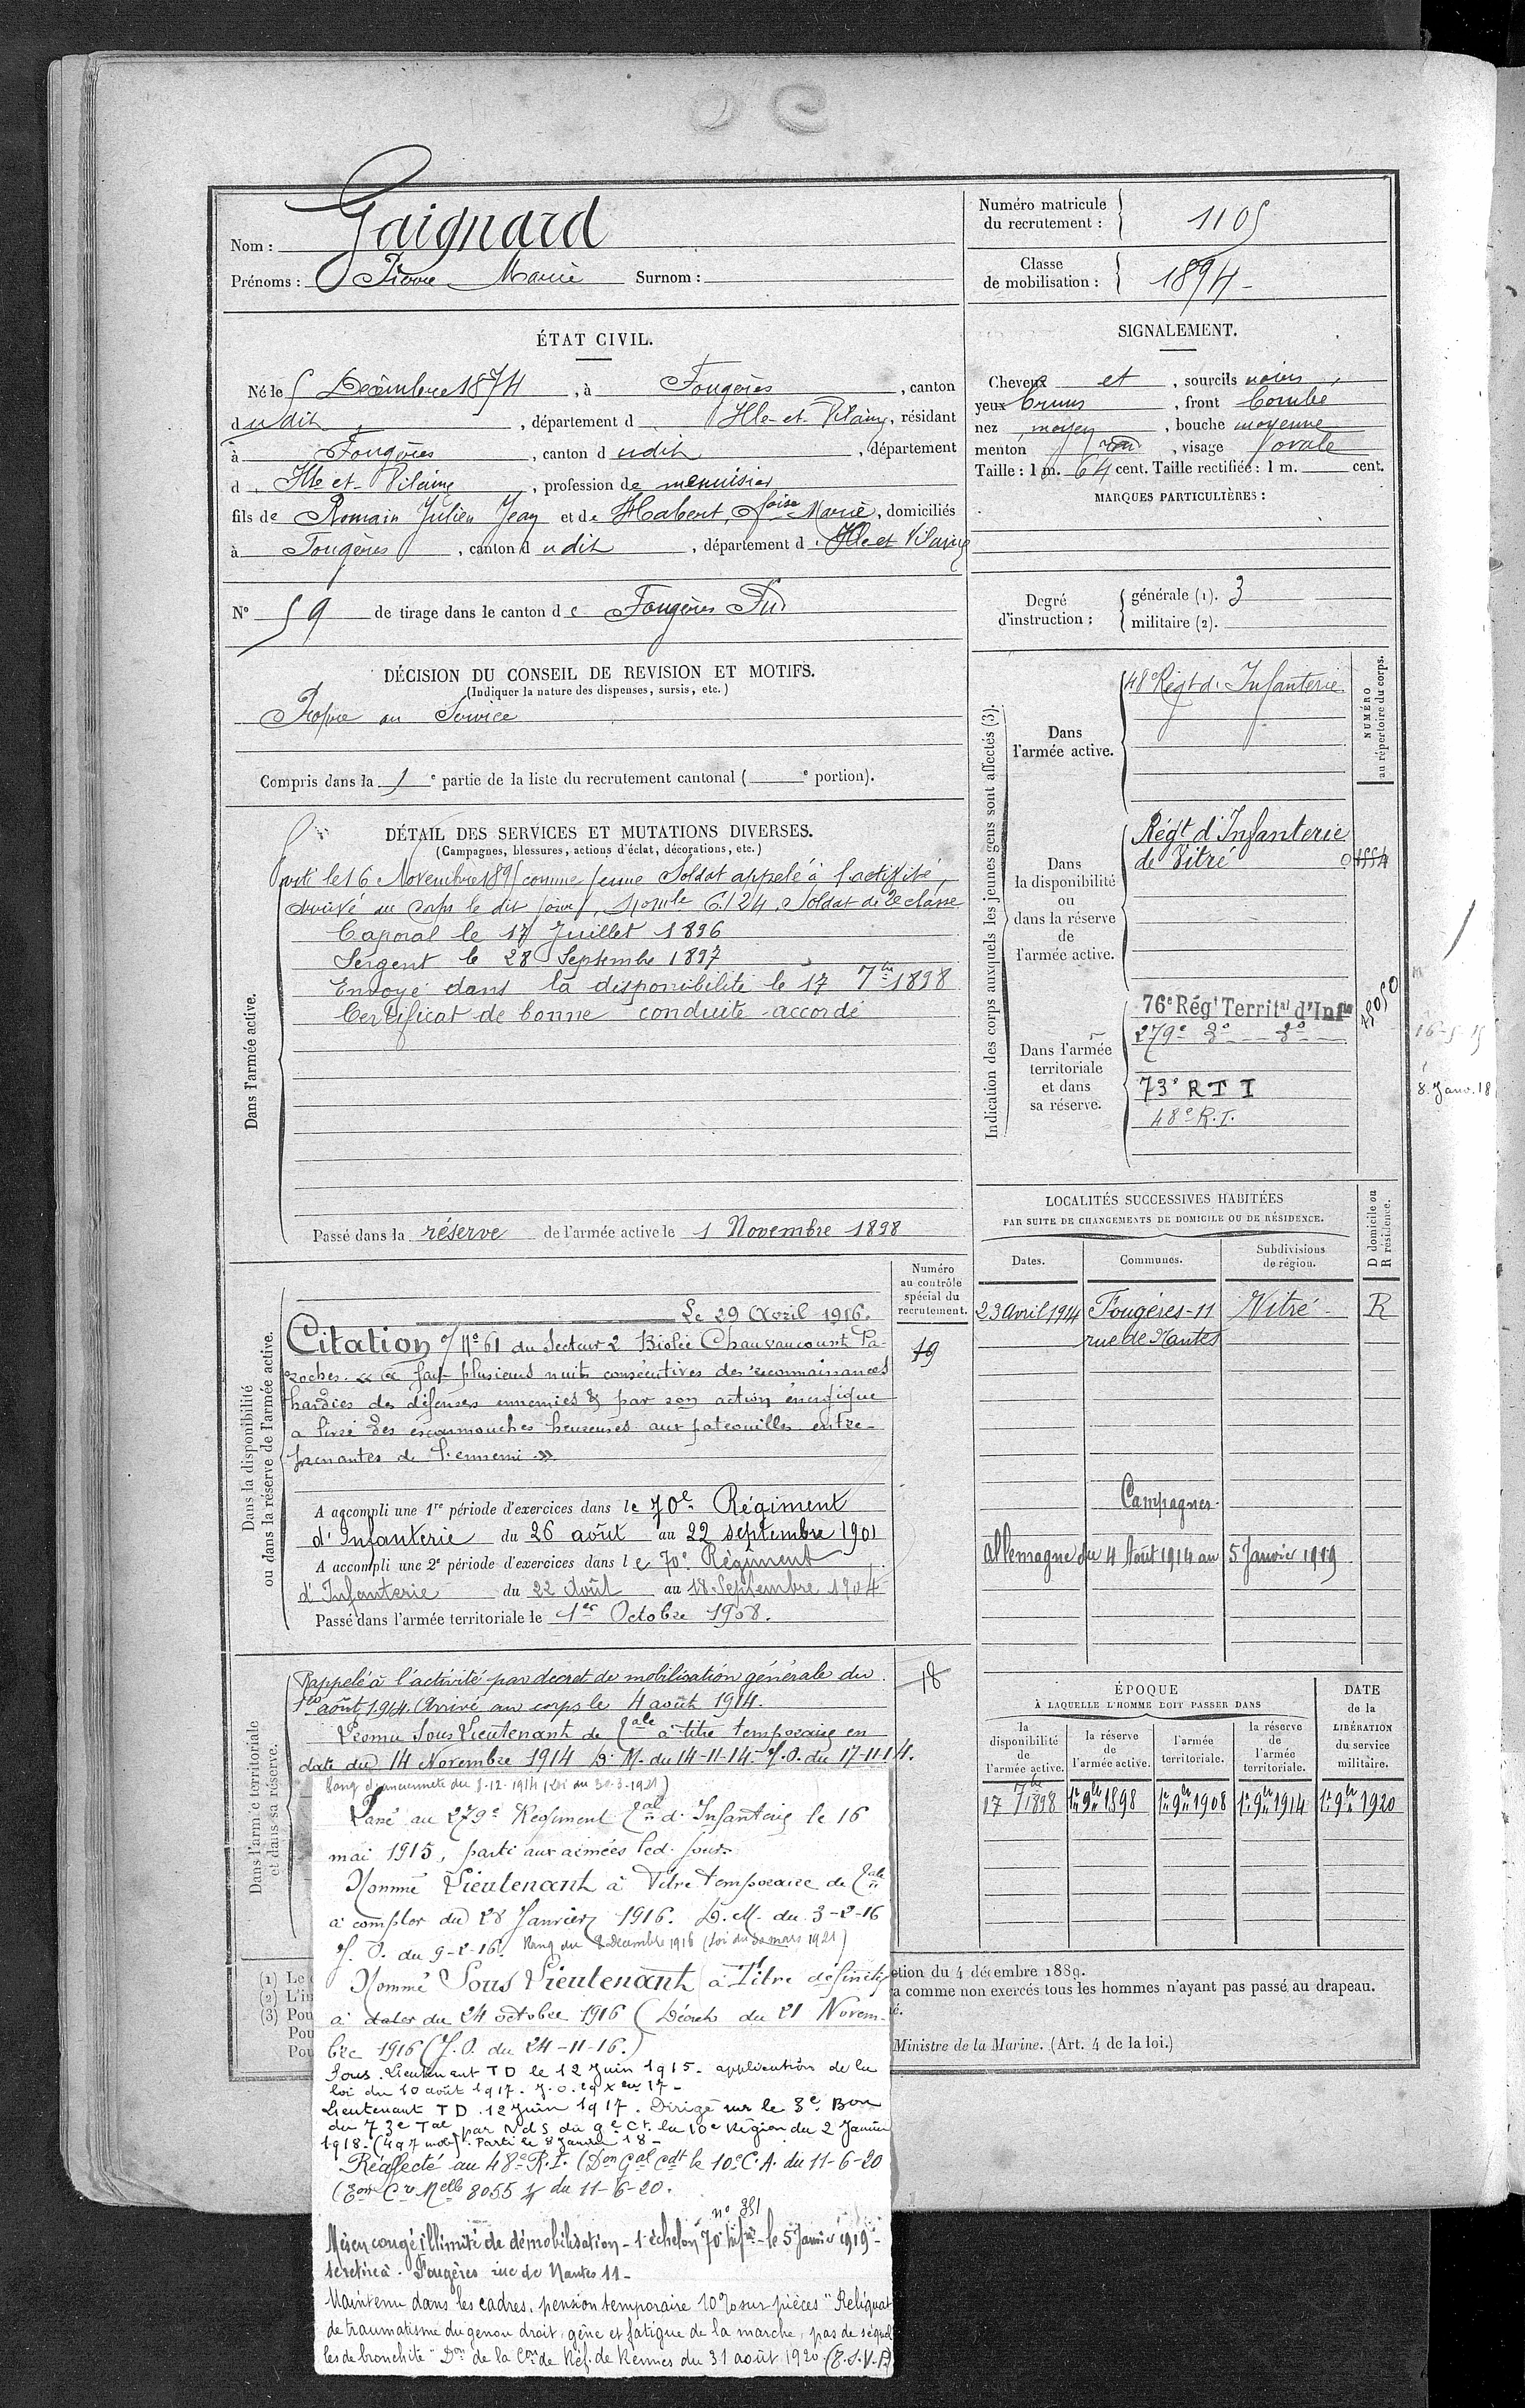 Nom : Gaignard
Prénoms : Pierre Marie Surnom :
Numéro matricule du recrutement : 1105
Classe de mobilisation : 1894
ÉTAT CIVIL.
Né le 5 Décembre 1874, à Fougères, canton
dudit, département d Ille-et-Vilaine, résidant
à Fougères, canton dudit, département
d Ille et Vilaine, profession de menuisier
fils de Romain Julien Jean et de Habert, foise Marie, domiciliés
à Fougères, canton dudit, département d Ille et Vilaine
N° 59 de tirage dans le canton de Fougères Sud
SIGNALEMENT.
Cheveux et, sourcils noirs,
yeux bruns, front bombé
nez moyen, bouche moyenne
menton rond, visage ovale
Taille : 1 m. 64 cent. Taille rectifiée : 1 m. cent.
MARQUES PARTICULIÈRES :
Degré d'instruction : générale (1). 3
militaire (2).
DÉCISION DU CONSEIL DE REVISION ET MOTIFS.
(Indiquer la nature des dispenses, sursis, etc.)
Propre au Service
Compris dans la 1e partie de la liste du recrutement cantonal ( e portion).
DÉTAIL DES SERVICES ET MUTATIONS DIVERSES.
(Campagnes, blessures, actions d'éclat, décorations, etc.)
Dans l'armée active.
le 16 Novembre 1895 comme jeune Soldat appelé à l'activité,
arrivé au corps le dit jour, 6124, Soldat de 2e classe
Caporal le 17 Juillet 1896
Sergent le 28 Septembre 1897
Envoyé dans la disponibilité le 17 7bre 1898
Certificat de bonne conduite accordé
Passé dans la réserve de l'armée active le 1 Novembre 1898
Indication des corps auxquels les jeunes gens sont affectés (3).
NUMÉRO au répertoire du corps.
Dans l'armée active.
48e Régt d'Infanterie
Dans la disponibilité ou dans la réserve de l'armée active.
Régt d'Infanterie
de Vitré
Dans l'armée territoriale et dans sa réserve.
76e Régt Territal d'Infie
279e do do
73e R T I
48e R.I.
8. Janv. 18
Dans la disponibilité ou dans la réserve de l'armée active.
Numéro au contrôle spécial du recrutement.
19
Le 29 Avril 1916.
Citation o/ No 61 du Secteur 2 Bislée Chauvoncourt Pa-
roches. « a fait plusieurs nuits consécutives des reconnaissances
hardies des défenses ennemies & par son action énergique
a livré des escarmouches heureuses aux patrouilles entre-
prenantes de l'ennemi »
A accompli une 1re période d'exercices dans le 70e Régiment
d'Infanterie du 26 août au 22 septembre 1901
A accompli une 2e période d'exercices dans le 70e Régiment
d'Infanterie du 22 Août au 18 Septembre 1904
Passé dans l'armée territoriale le 1er Octobre 1908.
LOCALITÉS SUCCESSIVES HABITÉES
PAR SUITE DE CHANGEMENTS DE DOMICILE OU DE RÉSIDENCE.
D domicile ou R résidence.
Dates. Communes. Subdivisions de région.
23 Avril 1914 Fougères - 11 Vitré R
rue de Nantes
Campagnes
Allemagne du 4 Août 1914 au 5 Janvier 1919
Dans l'armée territoriale et dans sa réserve.
18
Rappelé à l'activité par décret de mobilisation générale du
1er août 1914. Arrivé au corps le 4 août 1914.
Promu Sous Lieutenant de Rale à titre temporaire en
date du 14 Novembre 1914 D. M. du 14-11-14. J.O. du 17-11-14.
Rang d'ancienneté du 8-12-1914 (Loi du 30-3-1921)
Passé au 279e Régiment d'Infanterie le 16
mai 1915, parti aux armées led. jour.
Nommé Lieutenant à Titre temporaire de
à compter du 28 Janvier 1916. D.M. du 3-2-16
J. O. du 9-2-16. Rang du 8 Décembre 1916 (loi du 30 mars 1921)
Nommé Sous Lieutenant à Titre définitif
à dater du 24 octobre 1916 (Décret du 21 Novem-
bre 1916 (J.O. du 24-11-16.)
Sous-Lieutenant TD le 12 Juin 1915 - application de la
loi du 10 août 1917. J.O. 29 Xbre 17 -
Lieutenant TD 12 Juin 1917. Dirigé sur le 3e Bon
du 73e Tal par NdS du Gl Ct. la 10e Région du 2 Janvier
1918. (497 mob). Parti le 8 Janvier 18 -
Réaffecté au 48e R.I. (Don Gal Cdt le 10e C.A. du 11-6-20
8055 du 11-6-20.
n° 351
Mis en congé illimité de démobilisation - 1er échelon 70e Infie - le 5 Janvier 1919 -
se retire à Fougères rue de Nantes 11 -
Maintenu dans les cadres, pension temporaire 10% sur pièces "Reliquat
de traumatisme du genou droit, gêne et fatigue de la marche, pas de séquel
les de bronchite" Don de la Con de Réf. de Rennes du 31 août 1920. (T.S.V.P)
ÉPOQUE
À LAQUELLE L'HOMME DOIT PASSER DANS
la disponibilité de l'armée active.
la réserve de l'armée active.
l'armée territoriale.
la réserve de l'armée territoriale.
DATE de la LIBÉRATION du service militaire.
17 7bre 1898 1er 9bre 1898 1er 9bre 1908 1er 9bre 1914 1er 9bre 1920
(1) Le
ction du 4 décembre 1889.
(2) L'in
a comme non exercés tous les hommes n'ayant pas passé au drapeau.
(3) Pou
é.
Pou
Pou
Ministre de la Marine. (Art. 4 de la loi.)